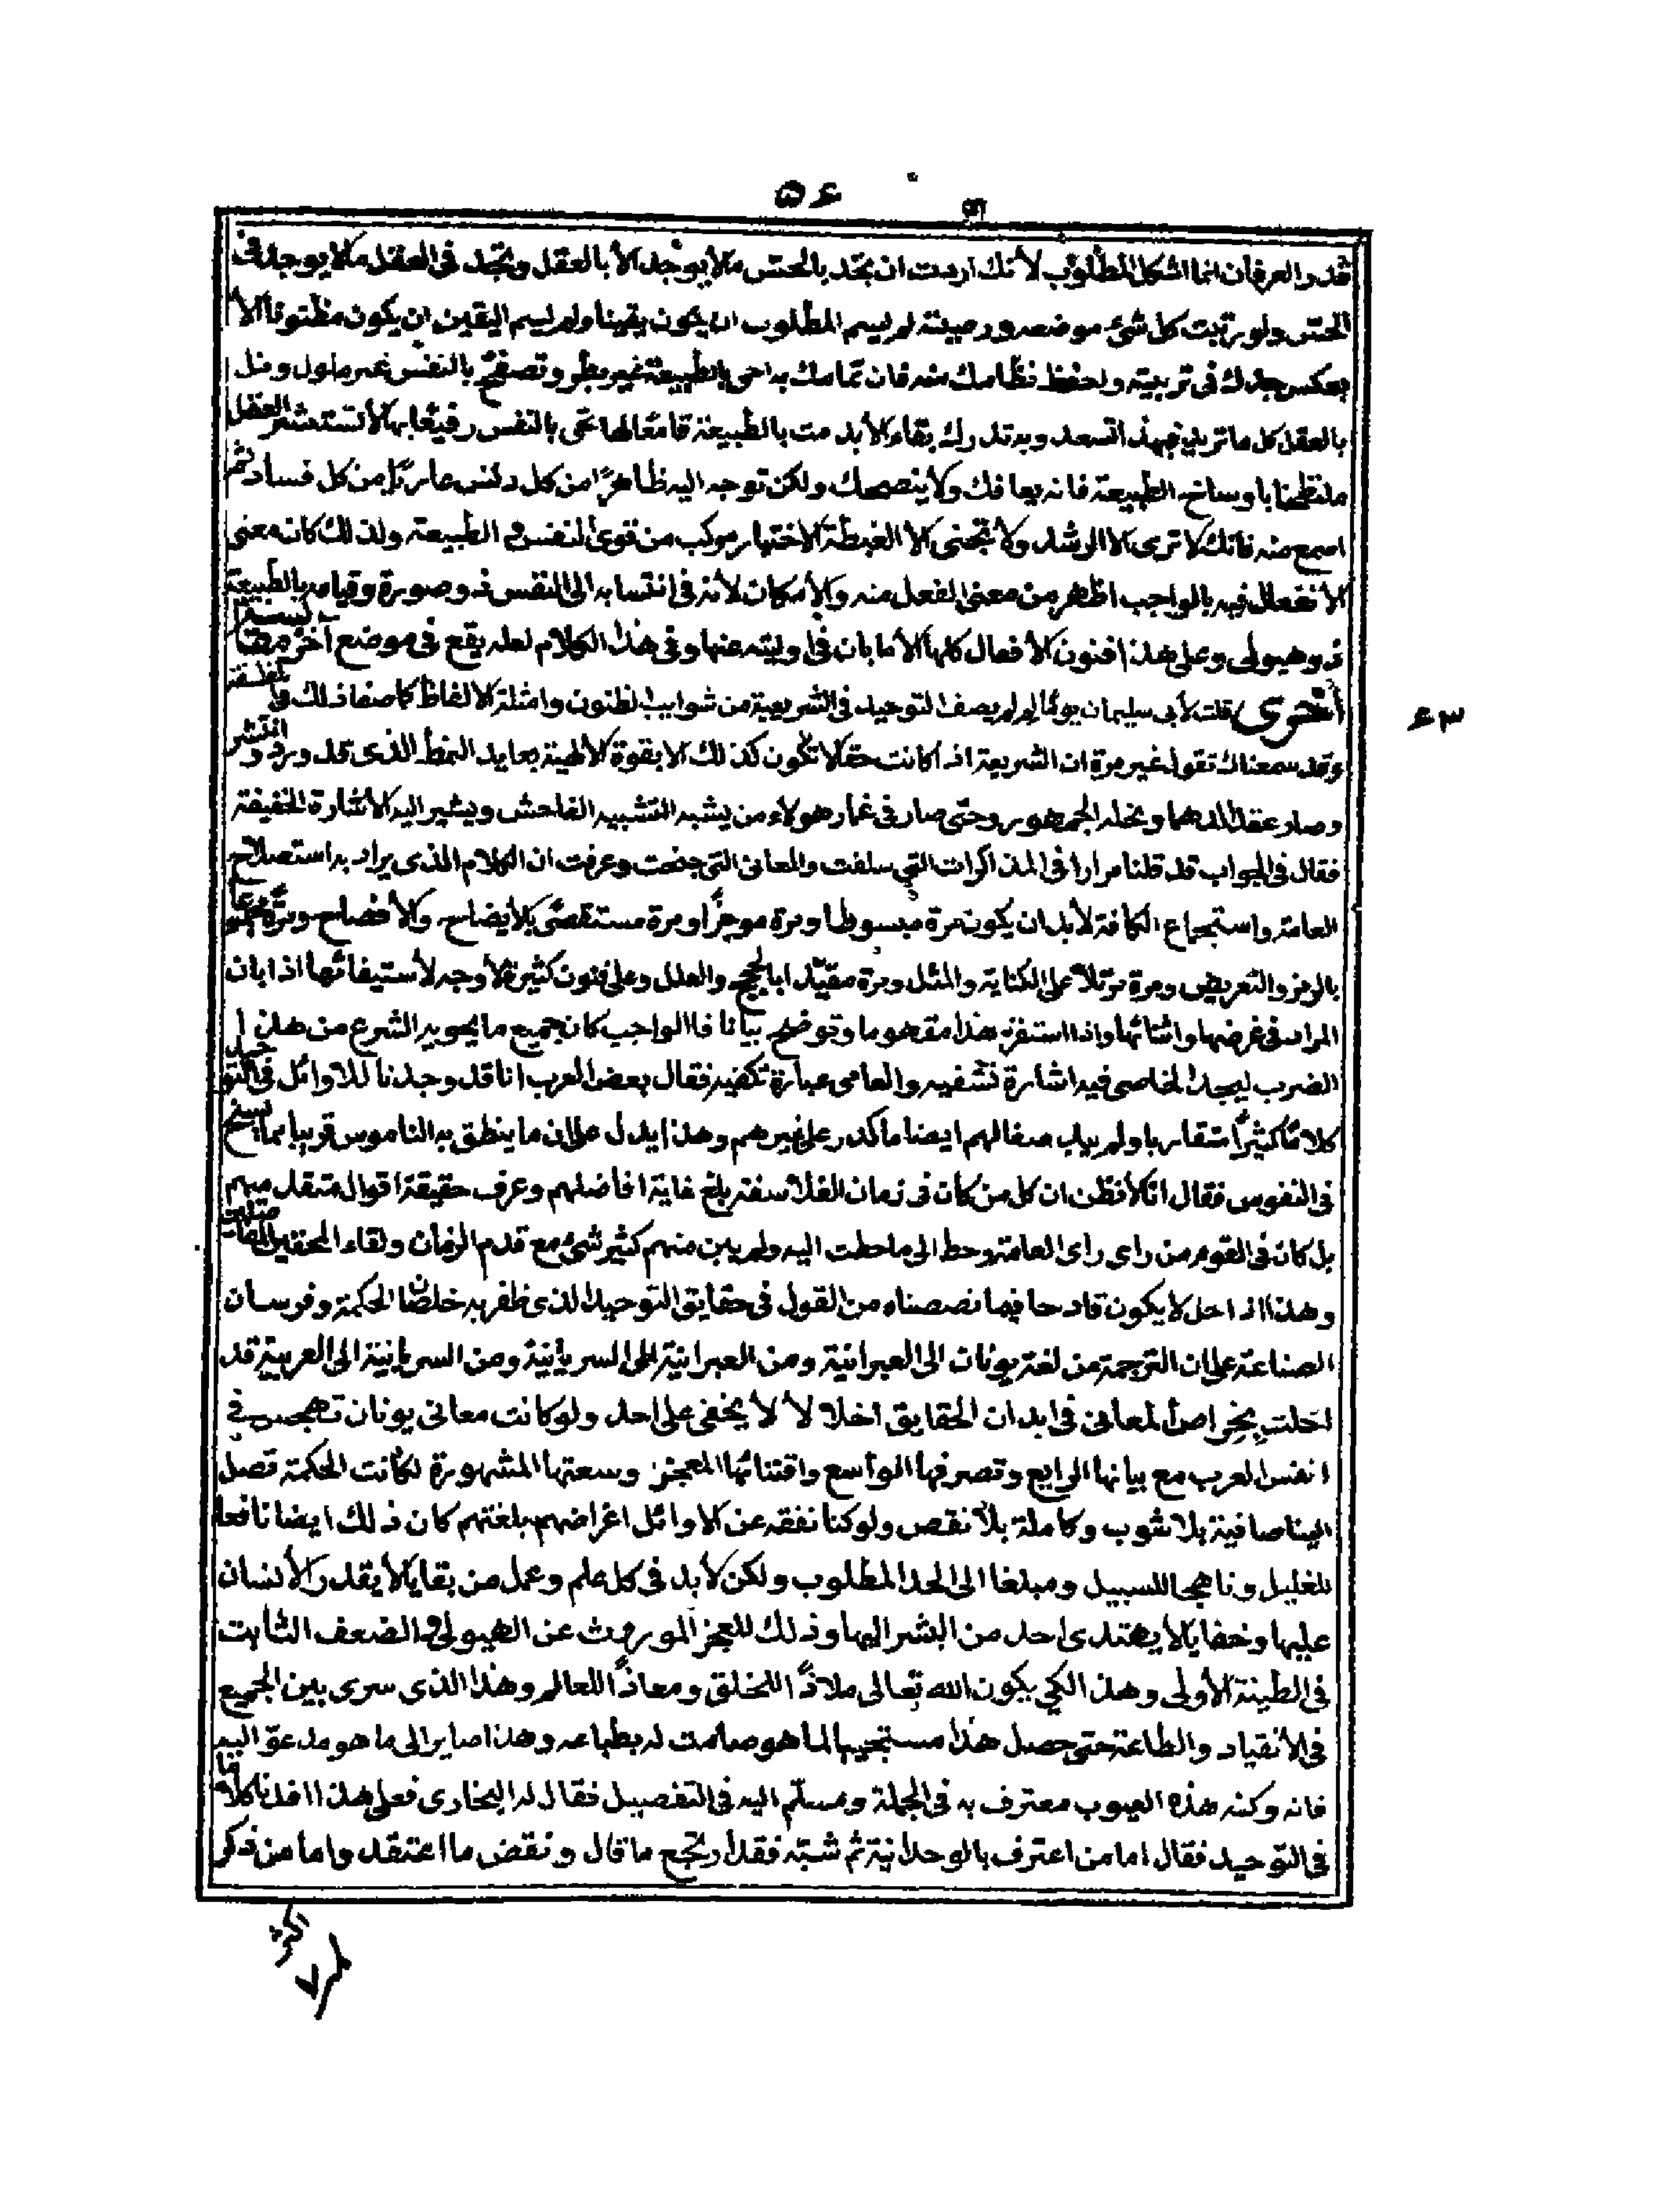 ۵۶
قدر العرفان انما اشكل المطلوب لأنك اردت ان تجد بالحس ما لا يوجد الا بالعقل وتجد فى العقل ما لا يوجد فى
الحس ولو رتبت كل شئ موضعه ورصينته لم يسم المطلوب ان يكون يقينا ولم يسم اليقين ان يكون مظنونا الا
بعكس جدك فى تربيته ولحفظ نظامك منه فان تمامك به احى بالطبيعة غير بطر وتصفح بالنفس غير ملول ونل
بالعقل كل ما تريد فبهذا تسعد وبه تدرك بقاء الأبد مت بالطبيعة قامعا لها عى بالنفس رفيعا بها لا تستشر العقل
ملتطخا باوساخ الطبيعة فانه يعافك ولا ينصحك ولكن توجه اليه ظاهرا من كل دنس عاريا من كل فساد ثم
اسمع منه فانك لا ترى الا الرشاد ولا تجتنى الا الغبطة الاختيار مركب من قوى النفس و الطبيعة ولذلك كان معنى
الأنفعال فيه بالواجب اظهر من معنى الفعل منه والأمكان لأنه فى انتسابه الى النفس ذو صورة وقيامه بالطبيعة
ذو هيولى وعلى هذا فنون الأفعال كلها الا ما بان فى اوليته عنها وفى هذا الكلام لعله يقع فى موضع آخر مقابسة
أخرى قلت لأبى سليمان يوما لم لم يصف التوحيد فى الشريعة من شوايب الظنون وامثلة الالفاظ كما صفا ذلك فى الفلسفة
۴۳
وقد سمعناك تقول غير مرة ان الشريعة اذا كانت حقا لا تكون كذلك الا بقوة الالهية بعايد النمط الذى قد ورد و انتشر
وصار عقد الدهما ونخله الجمهور وحتى صار فى غمار هولاء من يشبه التشبيه الفاحش ويشير اليه الاشارة الخفيفة
فقال فى الجواب قد قلنا مرارا فى المذاكرات التى سلفت والمعانى التى جنحت وعرفت ان الكلام الذى يراد به استصلاح
العامة واستجماع الكافة لا بد ان يكون مرة مبسوطا ومرة موجزا ومرة مستقصى بالأيضاح والأفصاح ومرة مجموعا
بالرمز والتعريض ومرة مرتلا على الكناية والمثل ومرة مقيدا بالحجج والعلل وعلى فنون كثيرة لا وجه لأستيفائها اذا بان
المراد فى غرضها واثنائها واذا استفز هذا مفهوما وتوضح بيانا فالواجب كان جميع ما يحويه الشرع من هذا
الضرب ليجد الخاصى فيه اشارة تشفيه والعامى عبارة تكفيه فقال بعض العرب انا قد وجدنا للاوائل فى التوحيد
كلاما كثيرا متقاربا ولم يباب مقالهم ايضا ما كدر على غيرهم وهذا يدل على ان ما ينطق به الناموس قريبا مما يسنح
فى النفوس فقال انا لا نظن ان كل من كان فى زمان الفلاسفة بلغ غاية افاضلهم وعرف حقيقة اقوال متقدميهم
بل كان فى القوم من راى راى العامة وحط الى ما حطت اليه ولم يبن منهم كثير شئ مع قدم الزمان ولقاء المحققين
وهذا اذا حل لا يكون قادحا فيما نصصناه من القول فى حقايق التوحيد الذى ظفر به خلصان الحكمة وفرسان
الصناعة على ان الترجمة من لغة يونان الى العبرانية ومن العبرانية الى السريانية ومن السريانية الى العربية قد
اخلت بخواص المعانى فى ابدان الحقايق اخلالا لا يخفى على احد ولو كانت معانى يونان تهجس فى
انفس العرب مع بيانها الرايع وتصرفها الواسع وافتنانها المعجز وسعتها المشهورة لكانت الحكمة تصل
الينا صافية بلا شوب وكاملة بلا نقص ولو كنا نفقه عن الاوائل اغراضهم بلغتهم كان ذلك ايضا نافعا
للغليل وناهجا للسبيل ومبلغا الى الحد المطلوب ولكن لا بد فى كل علم وعمل من بقايا لا يقدر الأنسان
عليها وخفايا لا يهتدى احد من البشر اليها وذلك للعجز الموروث عن الهيولى و الضعف الثابت
فى الطينة الأولى وهذا لكى يكون الله تعالى ملاذا للخلق ومعاذا للعالم وهذا الذى سرى بين الجميع
فى الأنقياد والطاعة حتى حصل هذا مستجيبا لما هو صامت له بطباعه وهذا صايرا الى ما هو مدعو اليه
فانه وكنه هذه الغيوب معترف به فى الجملة ومسلم اليه فى التفصيل فقال له البخارى فعلى هذا افدنا كلاما
فى التوحيد فقال اما من اعترف بالوحدانية ثم شبه فقد ارتجع ما قال ونقض ما اعتقد واما من ذكر